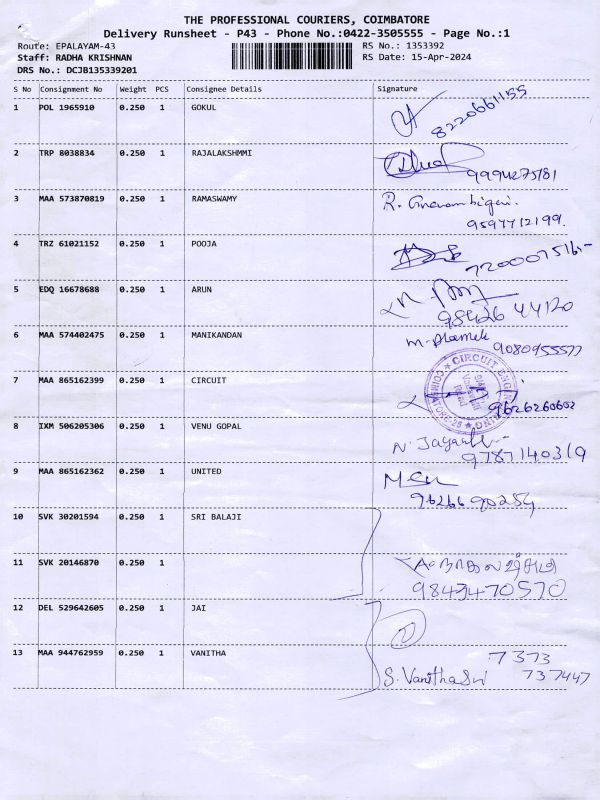 THE PROFESSIONAL COURIERS, COIMBATORE
Delivery Runsheet - P43 - Phone No.:0422-3505555 - Page No.:1
Route: EPALAYAM-43 RS No.: 1353392
Staff: RADHA KRISHNAN RS Date: 15-Apr-2024
DRS No.: DCJB135339201
S No Consignment No Weight PCS Consignee Details Signature
1 POL 1965910 0.250 1 GOKUL 8220661155
2 TRP 8038834 0.250 1 RAJALAKSHMMI 9994275181
3 MAA 573870819 0.250 1 RAMASWAMY R.
9597712199.
4 TRZ 61021152 0.250 1 POOJA 7200075161-
5 EDQ 16678688 0.250 1 ARUN
98426 44120
6 MAA 574402475 0.250 1 MANIKANDAN 9080955577
7 MAA 865162399 0.250 1 CIRCUIT 9626260602
8 IXM 506205306 0.250 1 VENU GOPAL N. 
9787140319
9 MAA 865162362 0.250 1 UNITED
96266 90254
10 SVK 30201594 0.250 1 SRI BALAJI
11 SVK 20146870 0.250 1
9843470570
12 DEL 529642605 0.250 1 JAI
13 MAA 944762959 0.250 1 VANITHA 7373
S. VanithaSri 737447